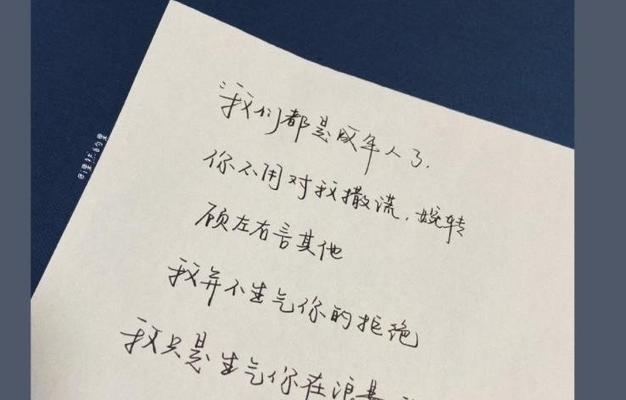 我们都是成年人了.
你不用对我撒谎,婉转
顾左右言其他
我并不生气你的拒绝
我只是生气你在浪